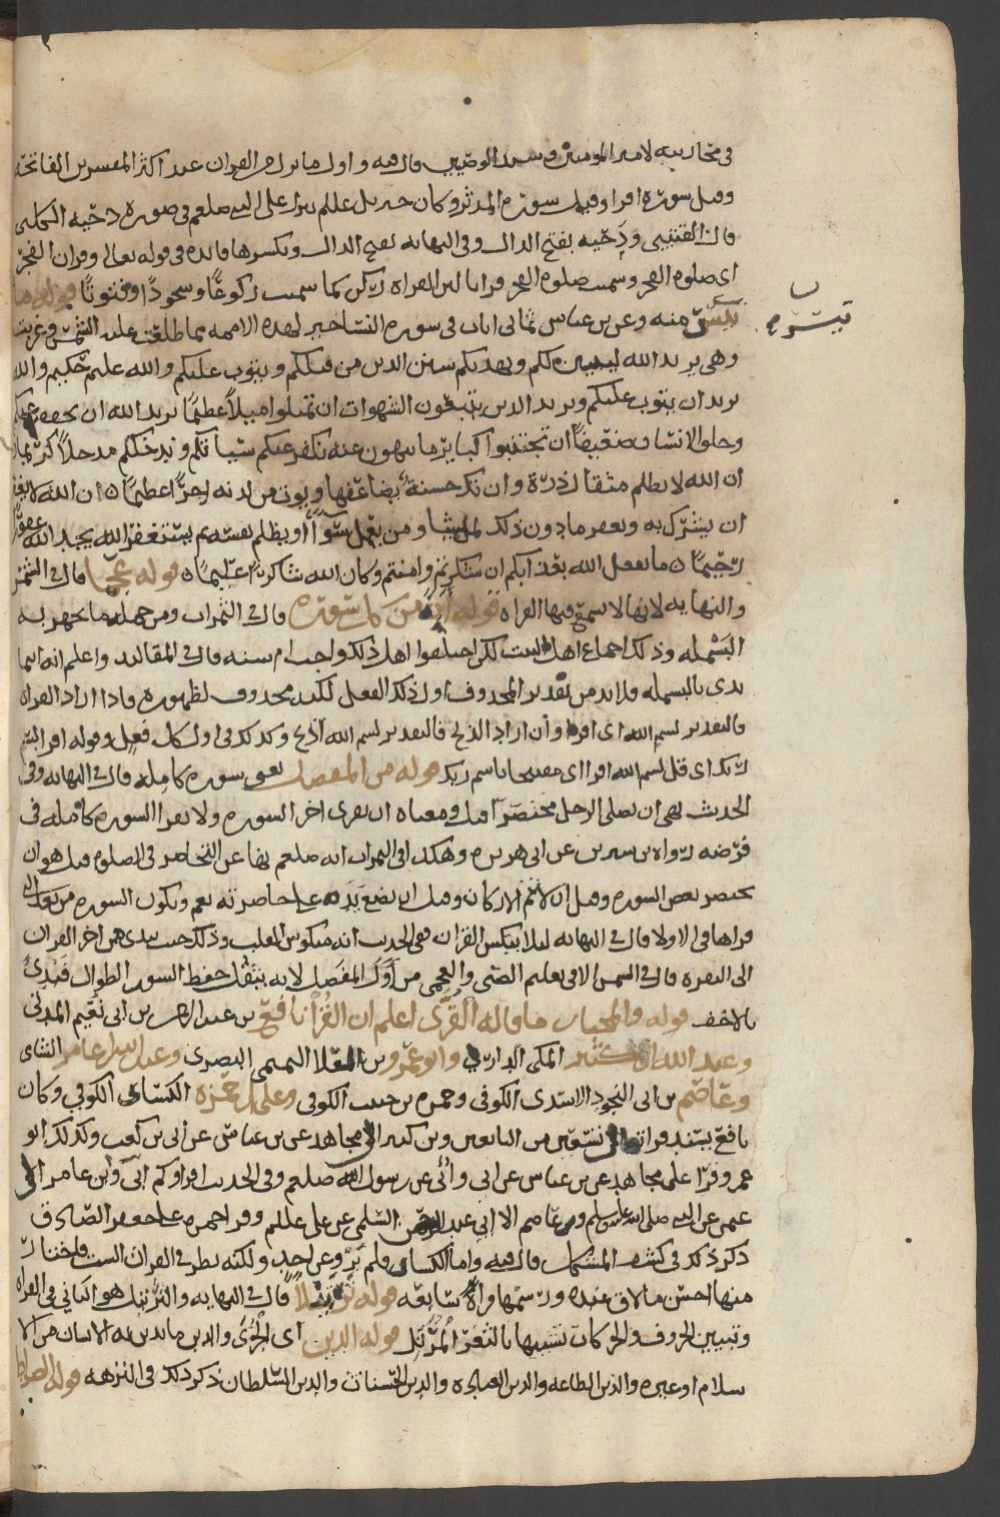 في محاربيه لامير المومنين وسيد الوصيين قال فيه واول ما نزل من القران عند اكثر المفسرين الفاتحة
وقيل سورة اقرا وقيل سورة المدثر وكان جبريل عللم ينزل على النبي صلعم في صورة دحيه الكلبي
قال القتيبي ودَحيه بفتح الدال وفي النهايه بفتح الدال وبكسرها فايده في قوله تعالى وقران الفجر
اى صلوة الفجر وسميت صلوة الفجر قرانا لان القراه ركن كما سميت ركوعًا وسجودًا وقنوتًا قوله ما
تيسّر منه وعن بن عباس ثماني ايات في سورة النسا خير لهذه الامه مما طلعت عليه الشمس وغربت
تيسّر
وهي يريد الله ليبين لكم ويهديكم سنن الذين من قبلكم ويتوب عليكم والله عليم حكيم والله
يريد ان يتوب عليكم ويريد الذين يتبعون الشهوات ان تميلوا ميلاً عظيمًا يريد الله ان يخفف عنكم
وخلق الانسان ضعيفًا ان تجتنبوا كباير ما تنهون عنه نكفر عنكم سيّاتكم وندخلكم مدخلاً كريمًا
ان الله لا يظلم مثقال ذرّة وان تك حسنة يضاعفها ويوت من لدنه اجرًا عظيمًا ان الله لا يغفر
ان يشرك به ويغفر ما دون ذلك لمن يشا ومن يعمل سوءًا او يظلم نفسه ثم يستغفر الله يجد الله غفورًا
رحيمًا ما يفعل الله بعذابكم ان شكرتم وامنتم وكان الله شاكرًا عليمًا قوله قال في الثمر
والنهايه لانها لا تسمع فيها القراه قوله اية من كل سورة قال في الثمرات ومن جمله ما يجهر به
البَسْمله وذلك اجماع اهل البيت لكن اختلفوا اهل ذلك واجب ام سنه قال في المقاليد واعلم انه انما
بدى بالبسمله ولا بد من تقدير المحذوف اول ذلك الفعل لكنه محذوف لظهوره فاذا اراد القراه
فالتقدير بسم الله اى اقرا وان اراد الذبح فالتقدير بسم الله اذبح وكذلك في اول كل فعل وقوله اقرا باسم
ربك اى قل بسم الله اقرا اى مفتتحا باسم ربك قوله من المفصل يعني سورة كامله قال في النهايه وفي
الحديث نهي ان يصلى الرجل مختصرًا قيل ومعناه ان يقرى اخر السورة ولا يقرا السورة كامله في
فرضه رواه بن سيرين عن ابي هريرة وهكذا في الثمرات انه صلعم نها عن التخاصر في الصلوة قيل هو ان
يختصر بعض السورة وقيل ان لا تتم الاركان وقيل ان يضع يَدَه على خاصرته نعم وتكون السورة من بعد التي
قراها في الاولا قال في النهايه ليلا ينكس القران ففي الحديث انه منكوس القلب وذلك حيث يبتدى من اخر القران
الى البقرة قال في الشمس الا في تعليم الصبى والعجمي من اوّل المفصّل لانه يثقل حفظ السور الطوال فبُدِئ
بالاخف قوله والمختار ما قاله القرّى اعلم ان القُرّا نافع بن عبد الرحمن بن ابي نعيم المدني
وعبد الله بن كثير المكي الداري وابو عمرو بن العلا التميمي البصرى وعبد الله بن عامر الشامي
وعاصم بن ابي النجود الاسدى الكوفى وحمزه بن حبيب الكوفى وعلى بن حمزه الكسائي الكوفي وكان
نافع يسند قراته الى سَبعين من التابعين وبن كثير الى مجاهد عن بن عباس عن ابي بن كعب وكذلك ابو
عمرو قرا على مجاهد عن بن عباس عن ابي وابي عن رسول الله صلعم وفي الحديث اقراوكم ابي وابن عامر الى
عثمن عن النبى صلى الله عليه وسلم وعاصم الى ابى عبد الرحمن السُّلمي عن علي عللم وقرا حمزه على جعفر الصّادق
ذكر ذلك في كشف المشكل قال فيه واما الكسائي فلم يَرْوِ عن احد ولكنه نظر في القراات الست فاختار
منها احسن ما لاق عنده ورسمها قراة سابعه قوله ترتيلاً قال في النهايه والترتيل هو التاني في القراه
وتبيين الحروف والحركات تشبيها بالثغر المرتّل قوله الدين اى الجزى والدين ما يدين به الانسان من الا
سلام او غيره والدين الطاعه والدين العباده والدين الحسنات والدين السّلطان ذكر ذلك في النزهه قوله الصراط